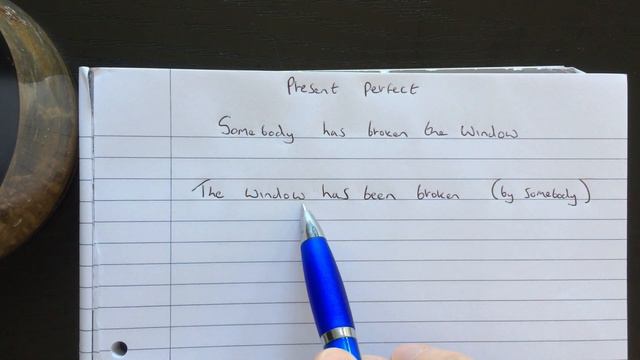 Present Perfect
Somebody has broken the window
The window has been broken (by somebody)